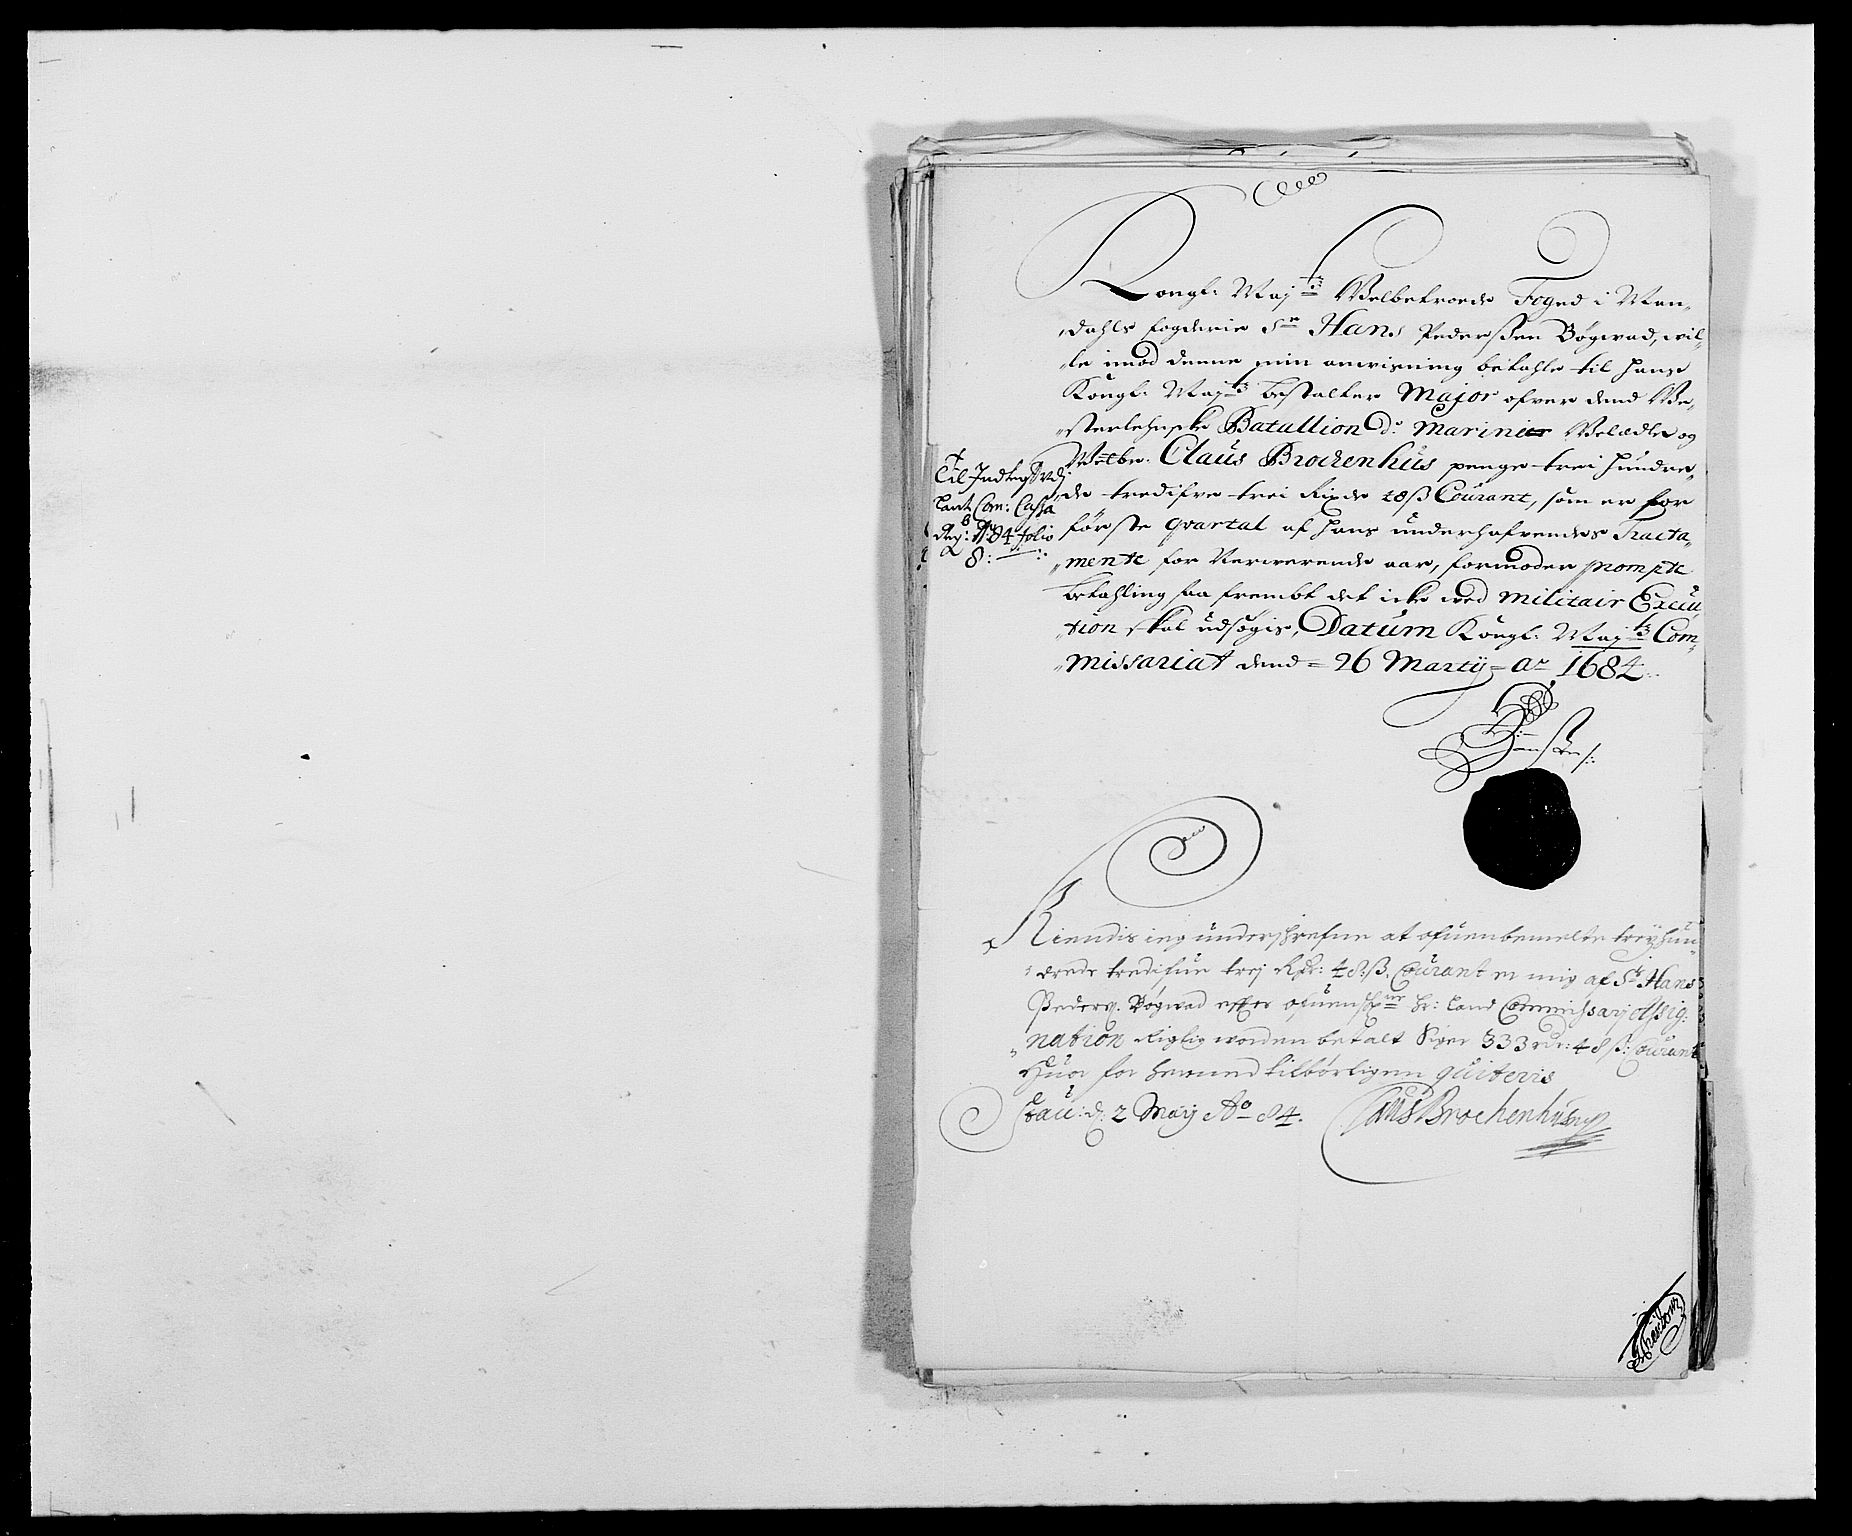 Kongl: Maj:ts Welbetroede Foged i Man„
„dahls fogderie Sr Hans Pederßen Bøgwad, wil„
„le imod denne min anvisning betahle til hans
Kongl: Maj:ts bestalter Major ofver dend We„
„sterlehnske Batallion de Marinier Welædle og
Welbr. Claus Brockenhus penge trei hundre„
„de tredifve trei Rixdr 48 ß Courant, som er for
første qvartal af hans underhafvendes Tracta„
„mente for Nerwerende aar, formoder prompte
betahling saa frembt det icke wed Militair Execu„
„tion skal udsøgis, Datum Kongl: Maj:ts Com„
„missariat dend = 26 Martij = Ao 1684
Til Indtegt udj
Lant Com: Cassa
Reg: 1684 folio
8:
Kiendis ieg underschrefne at ofuenbemelte treyhun„
„drede tredifue trej Rdr: 48 ß. Courant er mig af Sr Hans
Peders. Bøgwad effter ofuenschr: Hr: Land Commissarj Assig:
„nation Rigtig worden betalt Siger 333 rdr: 48 ß: Courant
Huor for hermed tilbørligen quiteris
d: 2 Maij Ao 84. Claus Brockenhus